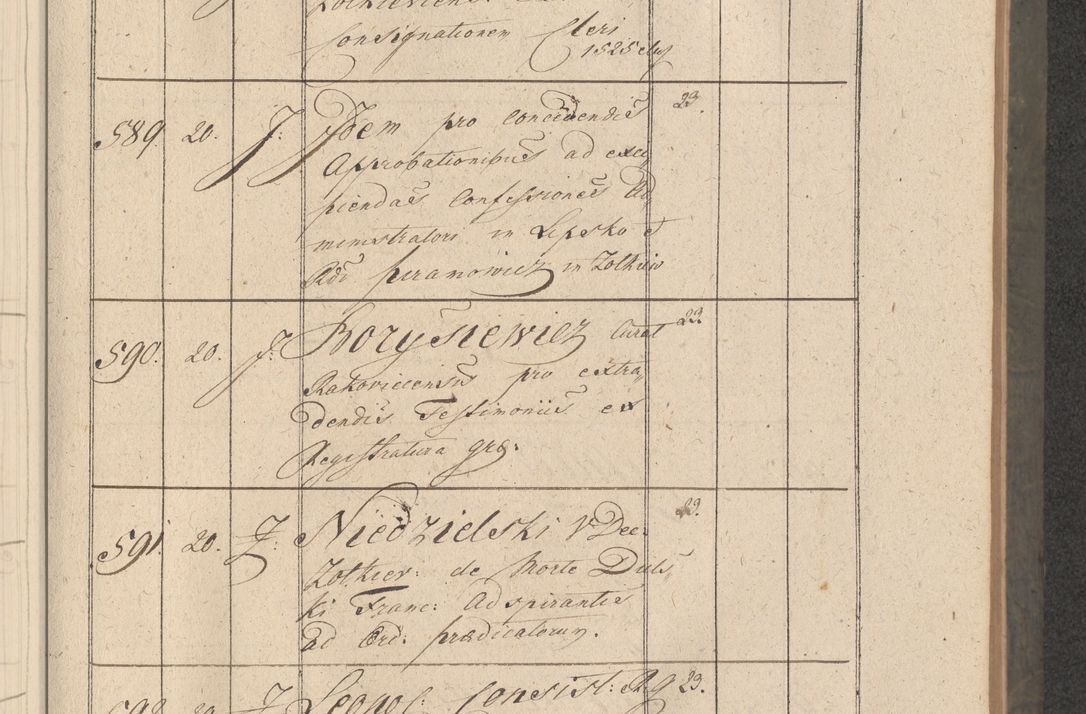 Consignationem Cleri
589. 20. J: Idem pro concedendis 23.
Approbationibus ad exci,,
piendas Confessiones Ad,,
ministratori in Lipsko et
in Zolkiew
590. 20. J: Borysiewicz Curat 23.
Rakoviecensis pro extra,,
dendis Testimoniis ex
Registratura gra:
591. 20. J: Niedzielski V Dec: 23.
Zolkiev: de Morte Duls
ki Franc: Adspirantis
ad Ord: prædicatorum.
20. J Leopol: Consist: 23.